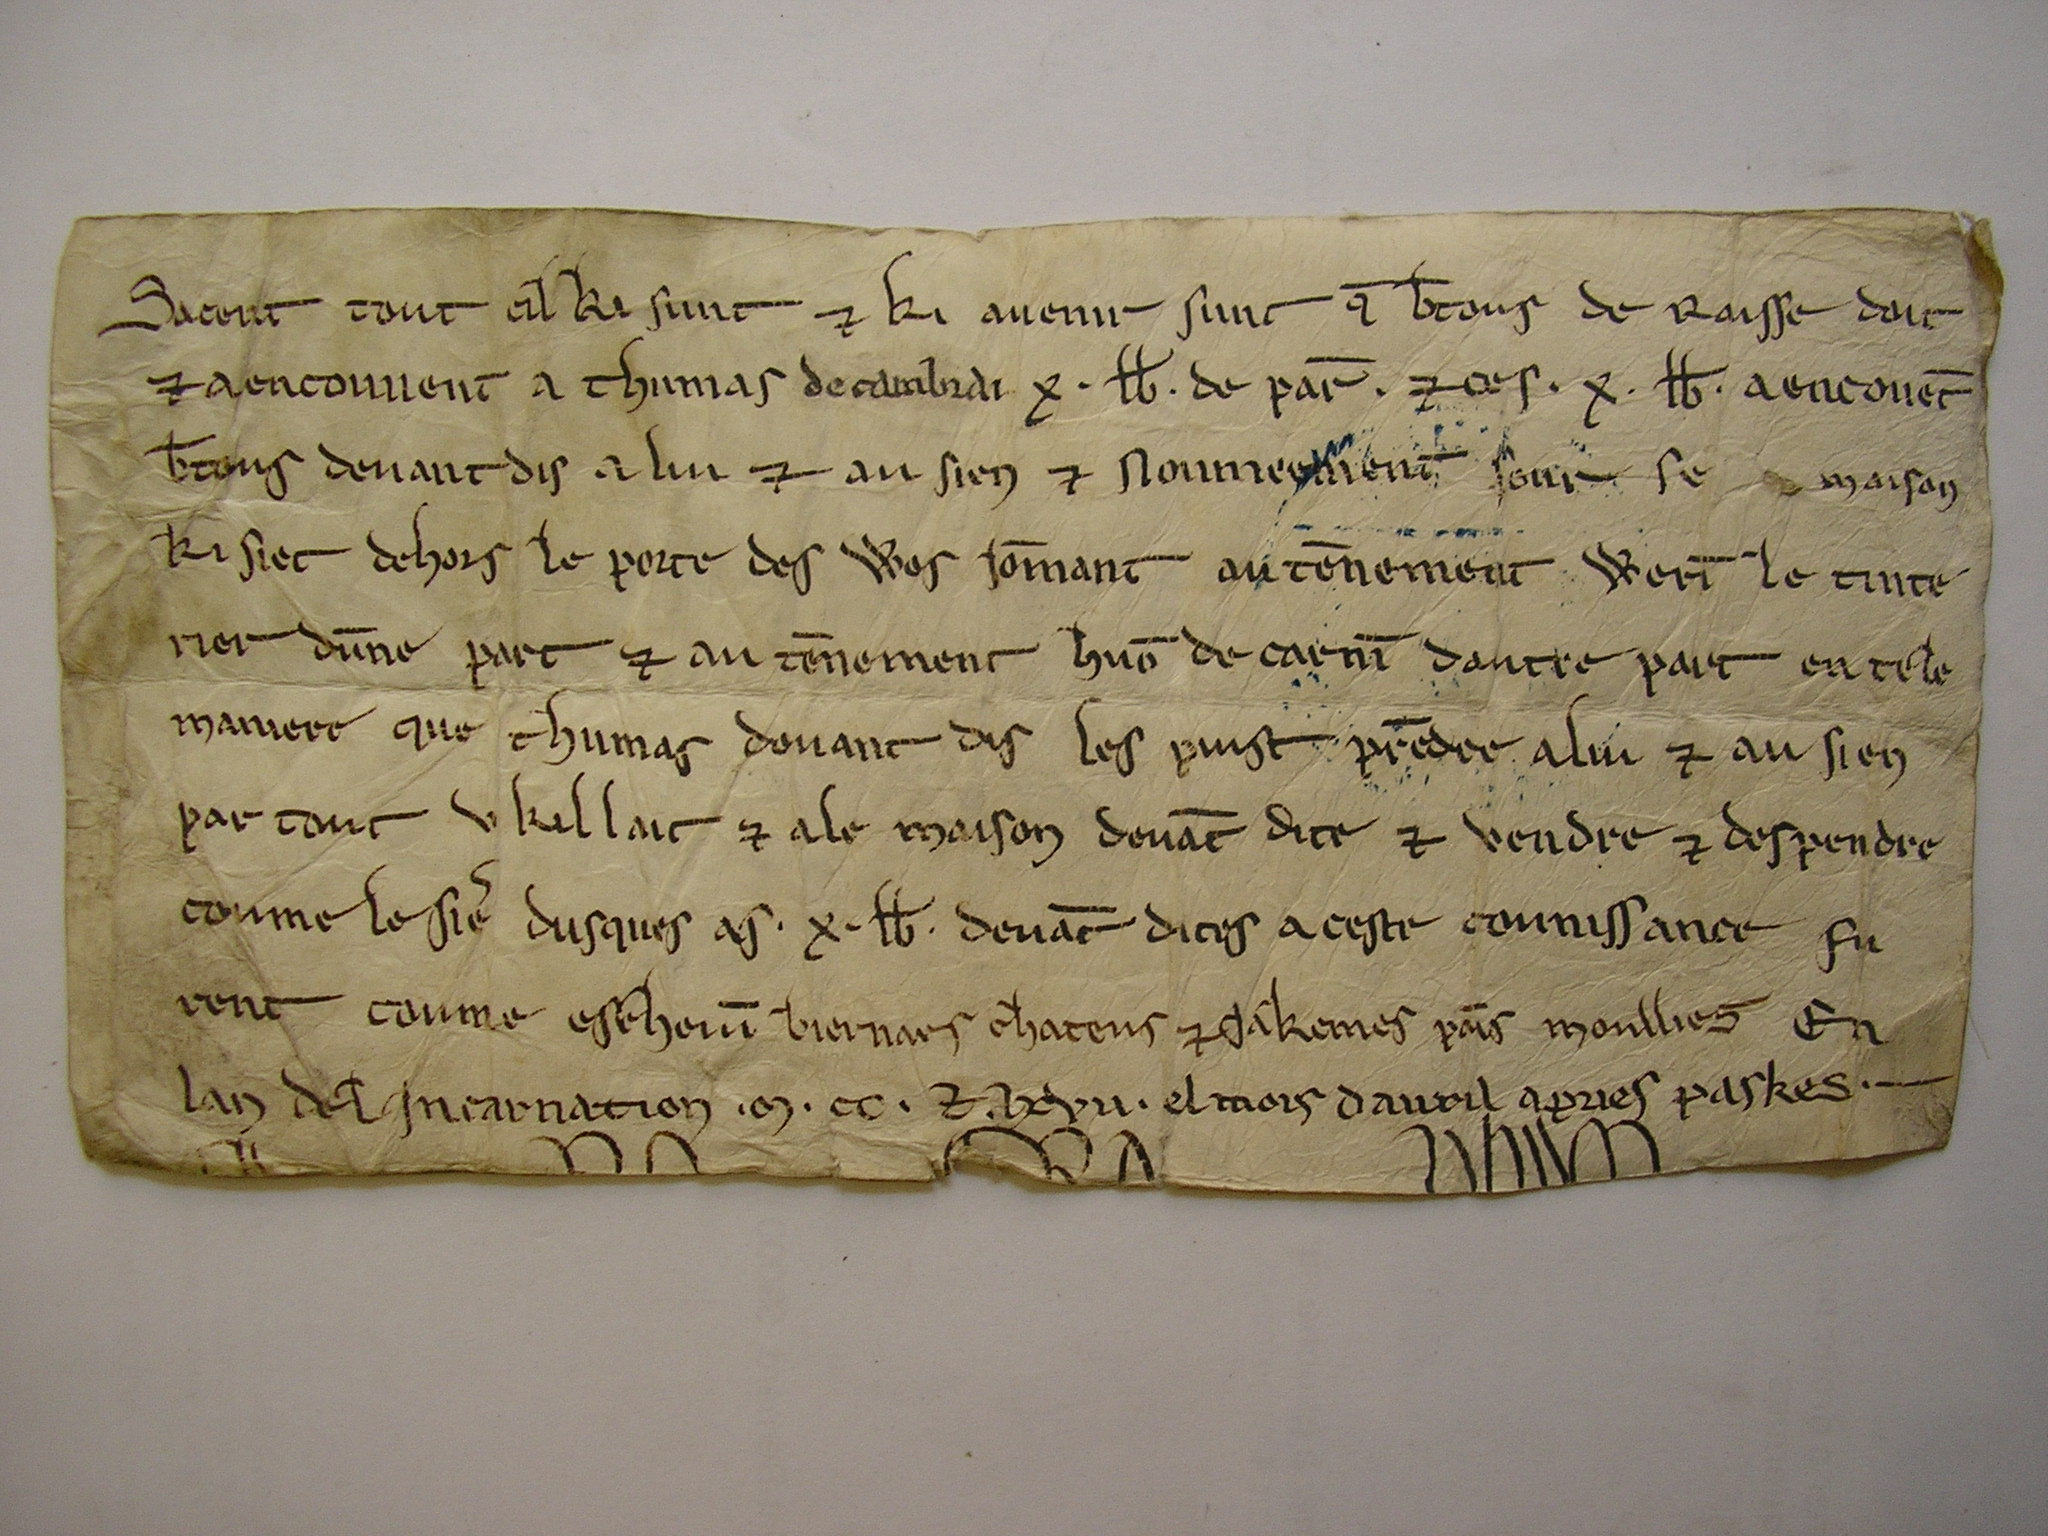 Sacent tout cil ki sunt ⁊ ki auenir sunt q̄ b̄tous de Raisse doit
⁊ a encouuent a thumas de cambrai x. lb̄. de par̄. ⁊ ces. x. lb̄. a encouēt
b̄tous deuant dis a lui ⁊ au sien ⁊ Noumeement sour se maison
ki siet dehors le porte des Wes joīnant au tēnement Werī le tinte
rier dūne part ⁊ au tēnement huō de carnī dautre part en tele
maniere que thumas douant dis les puist prēdre a lui ⁊ au sien
par tout v kil lait ⁊ a le maison deuāt dite ⁊ vendre ⁊ despendre
coume le siē dusques as. x. lb̄. deuāt dites a ceste counissance fu
rent coume escheuī biernars Jakemes pais moullies En
lan del Incarnation .m. cc. ⁊ lxvii. el mois dauril apries paskes.